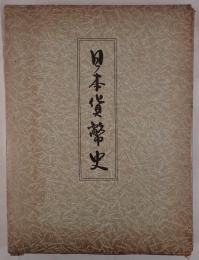 日本貨幣史